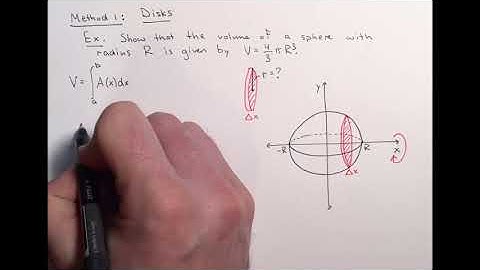 Method 1: Disks
Ex. Show that the volume of a sphere with
radius R is given by V = 4/3 πR³.
V = ∫ₐᵇ A(x)dx
r = ?
Δx
y
-R
R
x
Δx